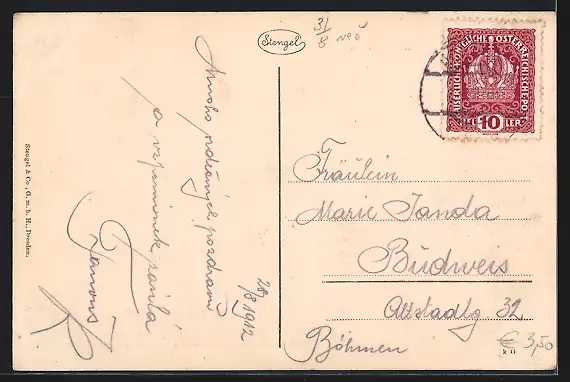 Stengel
31/8
KAISERLICHE KÖNIGLICHE ÖSTERREICHISCHE POST
HELLER
10
Mnoho srdečných pozdravů
a vzpomínek zasílá
28/8 1912
Fräulein
Marie Janda
Budweis
Altstadtg 32
Böhmen
€ 3,50
k 6
Stengel & Co., G. m. b. H., Dresden.